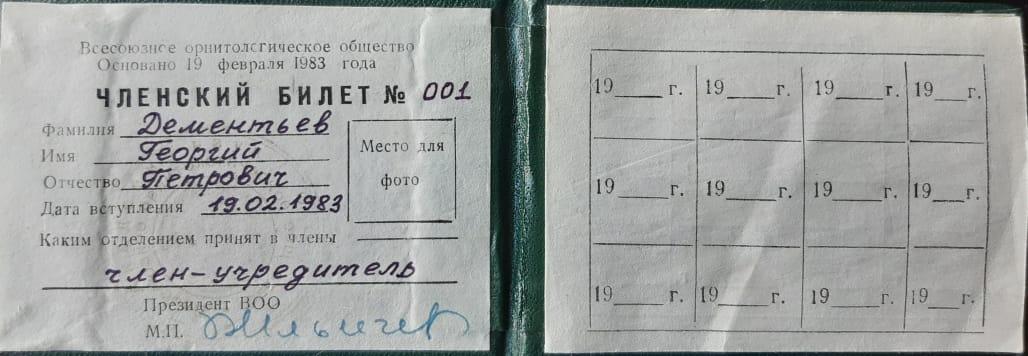 Всесоюзное орнитологическое общество
Основано 19 февраля 1983 года
ЧЛЕНСКИЙ БИЛЕТ № 001
Фамилия Дементьев
Имя Георгий
Отчество Петрович
Дата вступления 19.02.1983
Место для
фото
Каким отделением принят в члены
член-учредитель
Президент ВОО
М.П. В Ильичев
19 ____ г. 19 ____ г. 19 ____ г. 19 ____ г.
19 ____ г. 19 ____ г. 19 ____ г. 19 ____ г.
19 ____ г. 19 ____ г. 19 ____ г. 19 ____ г.